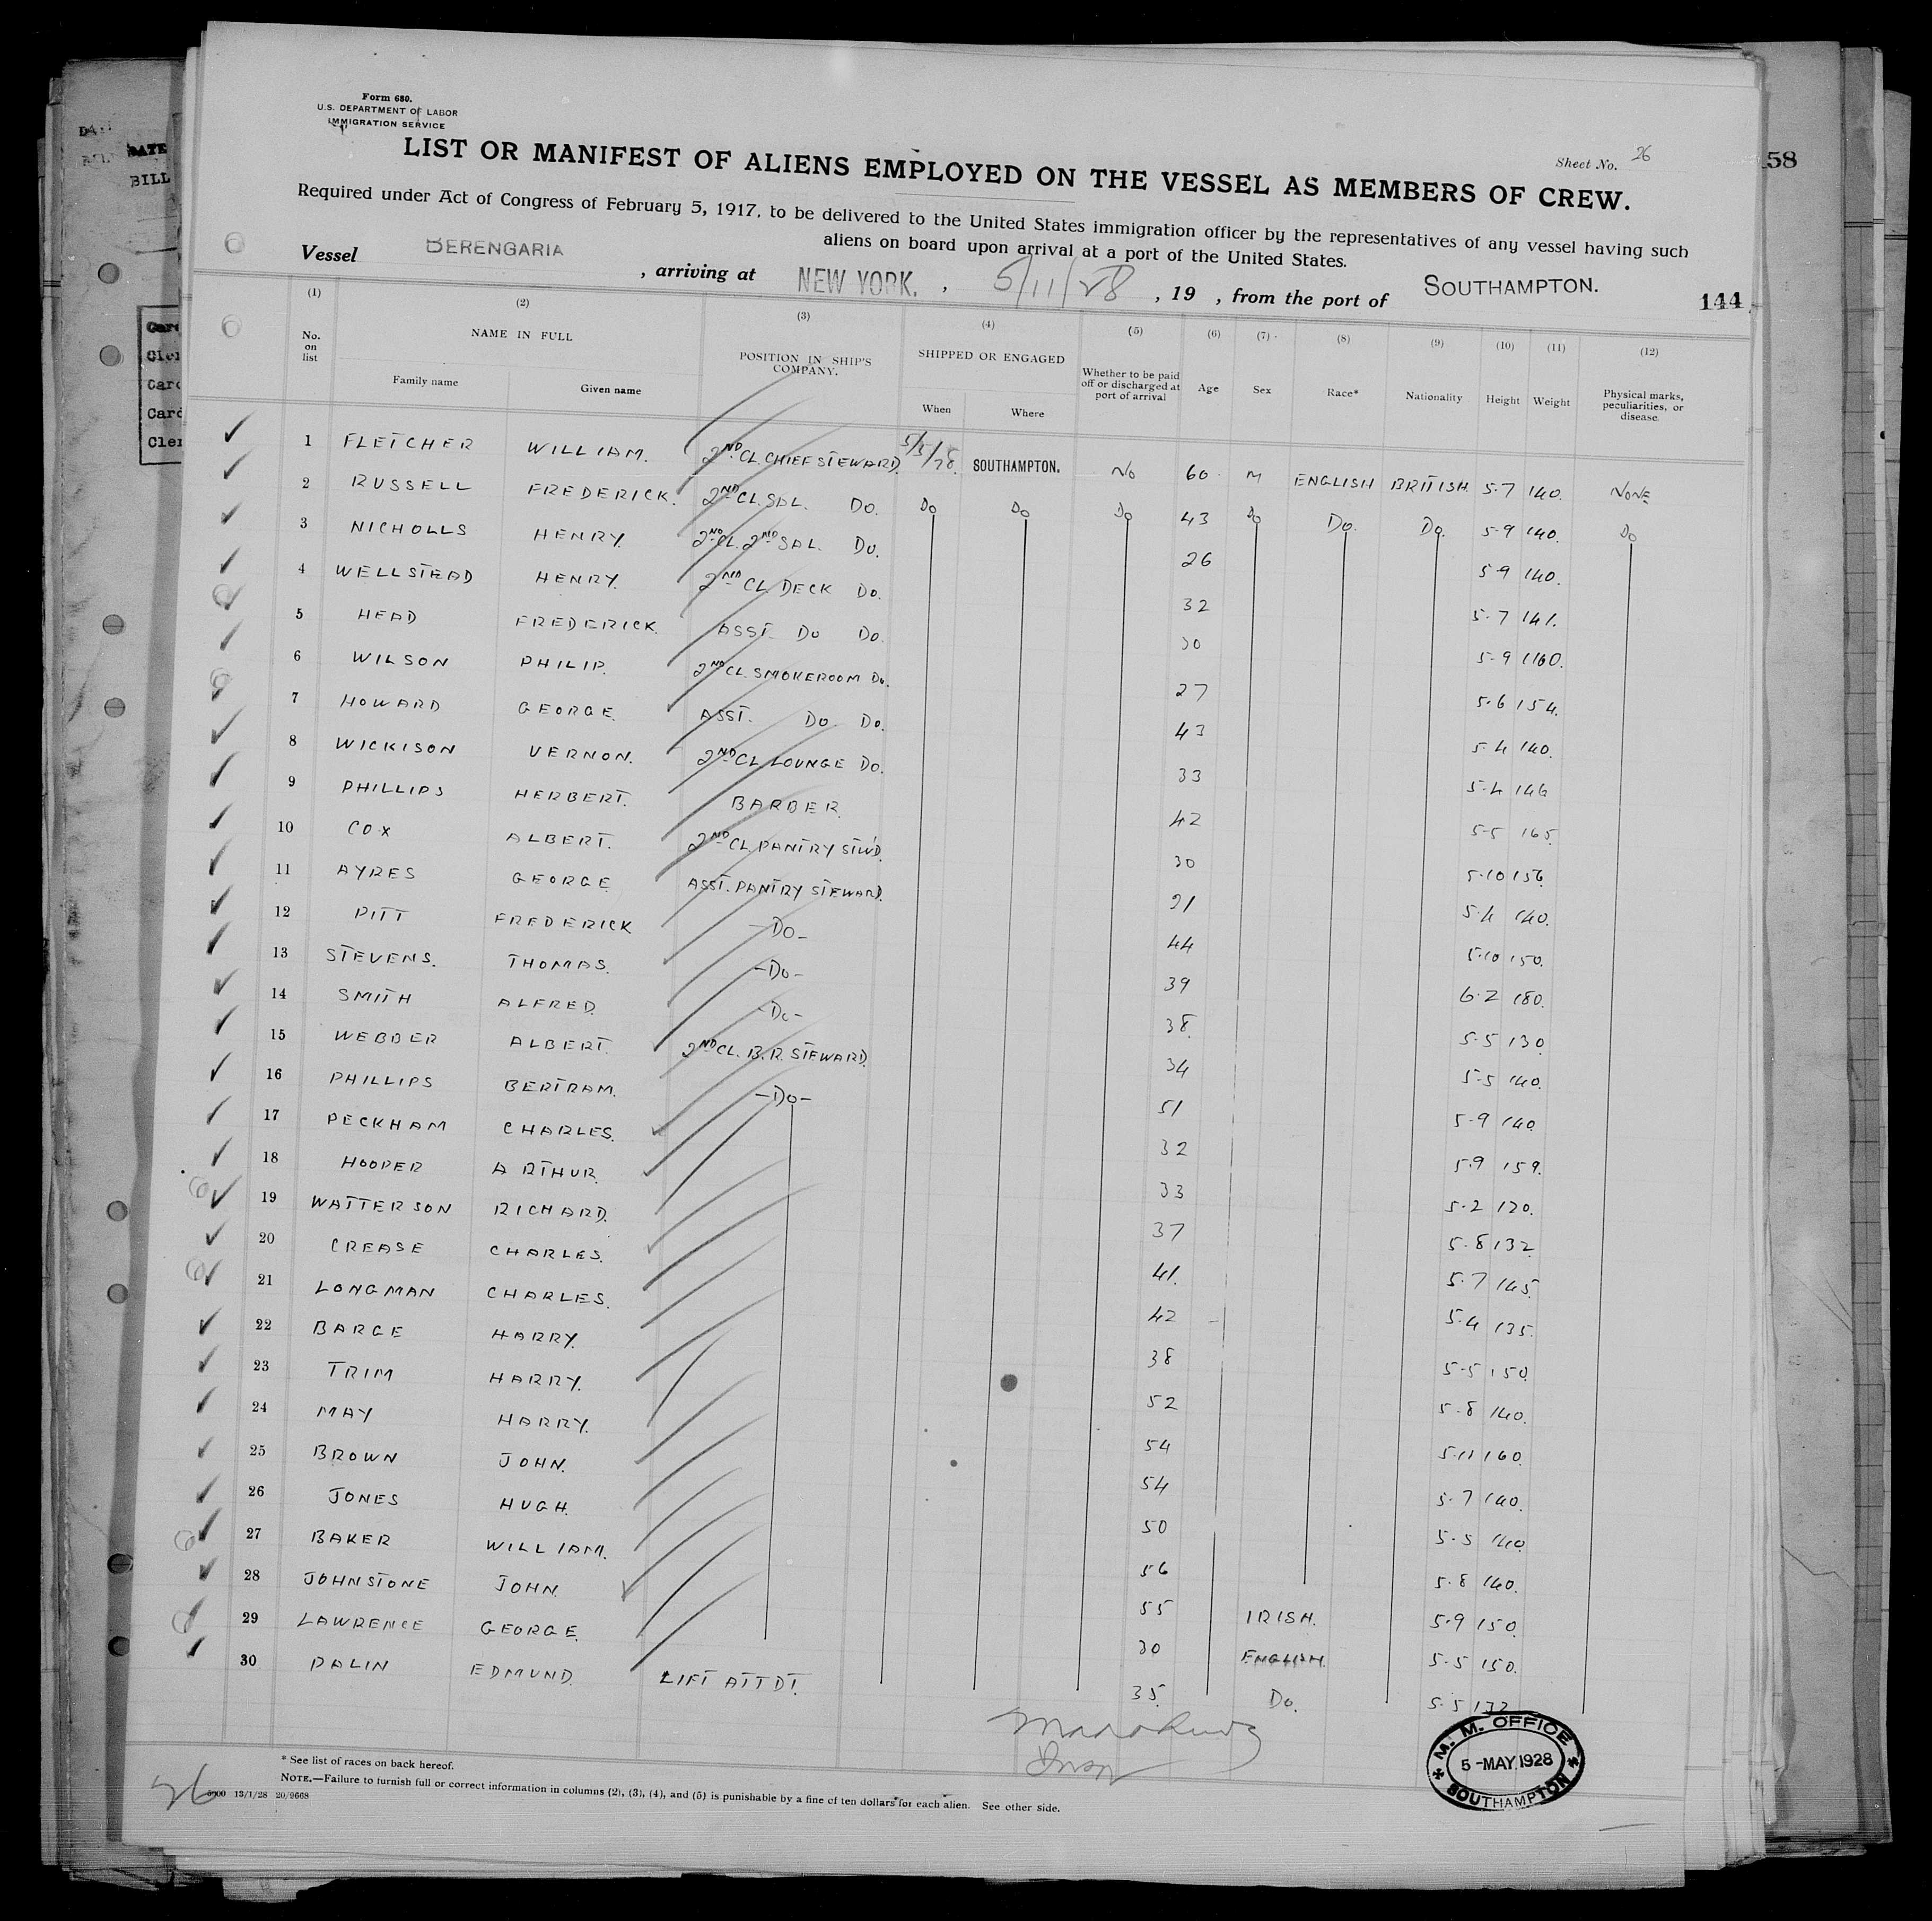 Form 680.
U.S. DEPARTMENT OF LABOR
IMMIGRATION SERVICE
Sheet No. 26
58
DATE
BILL
LIST OR MANIFEST OF ALIENS EMPLOYED ON THE VESSEL AS MEMBERS OF CREW.
Required under Act of Congress of February 5, 1917, to be delivered to the United States immigration officer by the representatives of any vessel having such
aliens on board upon arrival at a port of the United States.
Vessel BERENGARIA , arriving at NEW YORK. , 5/11/28 , 19 , from the port of SOUTHAMPTON.
144
(1) (2) (3) (4) (5) (6) (7) (8) (9) (10) (11) (12)
No. on list NAME IN FULL POSITION IN SHIP'S COMPANY. SHIPPED OR ENGAGED Whether to be paid off or discharged at port of arrival Age Sex Race* Nationality Height Weight Physical marks, peculiarities, or disease
Family name Given name When Where
1 FLETCHER WILLIAM. 2ND CL. CHIEF STEWARD. 5/5/28. SOUTHAMPTON. No 60 M ENGLISH BRITISH. 5·7 140. NONE
2 RUSSELL FREDERICK. 2ND CL. SAL. DO. Do Do Do 43 Do Do. Do. 5·9 140. Do
3 NICHOLLS HENRY. 2ND CL. 2ND SAL. DO. 26 5·9 140.
4 WELLSTEAD HENRY. 2ND CL DECK DO. 32 5·7 141.
5 HEAD FREDERICK. ASST. DO DO. 30 5·9 160.
6 WILSON PHILIP. 2ND CL. SMOKEROOM DO. 27 5·6 154.
7 HOWARD GEORGE. ASST. DO DO. 43 5·4 140.
8 WICKISON VERNON. 2ND CL LOUNGE DO. 33 5·4 146
9 PHILLIPS HERBERT. BARBER. 42 5·5 165.
10 COX ALBERT. 2ND CL. PANTRY STWD. 30 5·10 156.
11 AYRES GEORGE ASST. PANTRY STEWARD. 21 5·4 140.
12 PITT FREDERICK -DO- 44 5·10 150.
13 STEVENS. THOMAS. -DO- 39 6·2 180.
14 SMITH ALFRED. -DO- 38 5·5 130.
15 WEBBER ALBERT. 2ND CL. B.R. STEWARD. 34 5·5 140.
16 PHILLIPS BERTRAM. -DO- 51 5·9 140.
17 PECKHAM CHARLES. 32 5·9 159.
18 HOOPER ARTHUR. 33 5·2 120.
19 WATTERSON RICHARD. 37 5·8 132.
20 CREASE CHARLES. 41. 5·7 145.
21 LONGMAN CHARLES. 42 5·4 135.
22 BARGE HARRY. 38 5·5 150.
23 TRIM HARRY. 52 5·8 140.
24 MAY HARRY. 54 5·11 160.
25 BROWN JOHN. 54 5·7 140.
26 JONES HUGH. 50 5·5 140.
27 BAKER WILLIAM. 56 5·8 140.
28 JOHNSTONE JOHN. 55 IRISH. 5·9 150.
29 LAWRENCE GEORGE. 30 ENGLISH. 5·5 150.
30 PALIN EDMUND. LIFT ATTDT. 35. Do. 5·5
M. M. OFFICE
5-MAY 1928
SOUTHAMPTON
* See list of races on back hereof.
NOTE.—Failure to furnish full or correct information in columns (2), (3), (4), and (5) is punishable by a fine of ten dollars for each alien. See other side.
26
13/1/28 20/9668